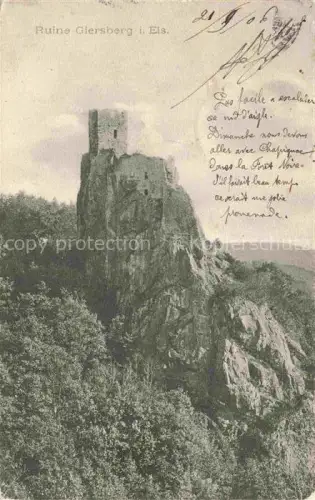 Ruine Giersberg i. Els.
21 9 06
Pas facile a escalader
ce nid d'aigle.
Dimanche nous devons
aller avec Chapignac
dans la Forêt Noire.
S'il faisait beau temps
ce serait une jolie
promenade.
copyright-protected
copyright-protected